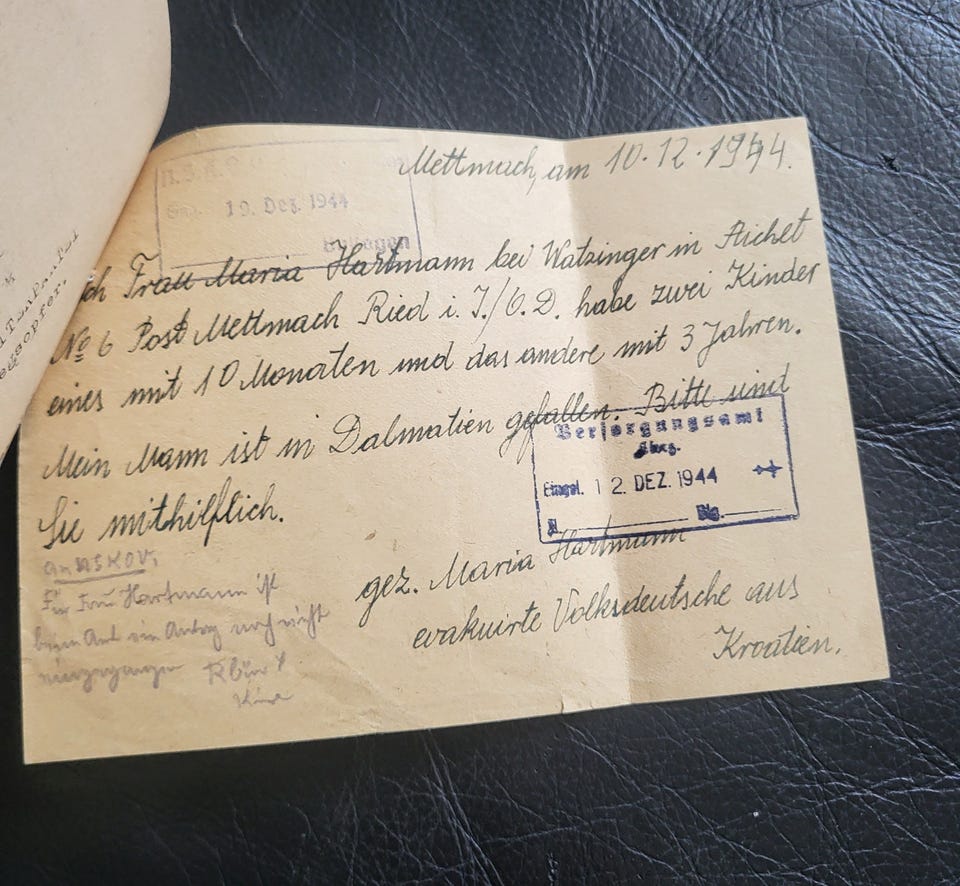 Mettmach, am 10.12.1944.
N.S.K.O.
19. Dez. 1944
Beilagen
ch Frau Maria Hartmann bei Watzinger in Aichet
No 6 Post Mettmach Ried i. I./O.D. habe zwei Kinder
eines mit 10 Monaten und das andere mit 3 Jahren.
Mein Mann ist in Dalmatien gefallen. Bitte sind
Sie mithilflich.
Versorgungsamt
Eingel. 12. DEZ. 1944
gez. Maria Hartmann
evakuirte Volksdeutsche aus
Kroatien.
an NSKOV.
Für Frau Hartmann ist
beim Amt ein Antrag noch nicht
eingegangen